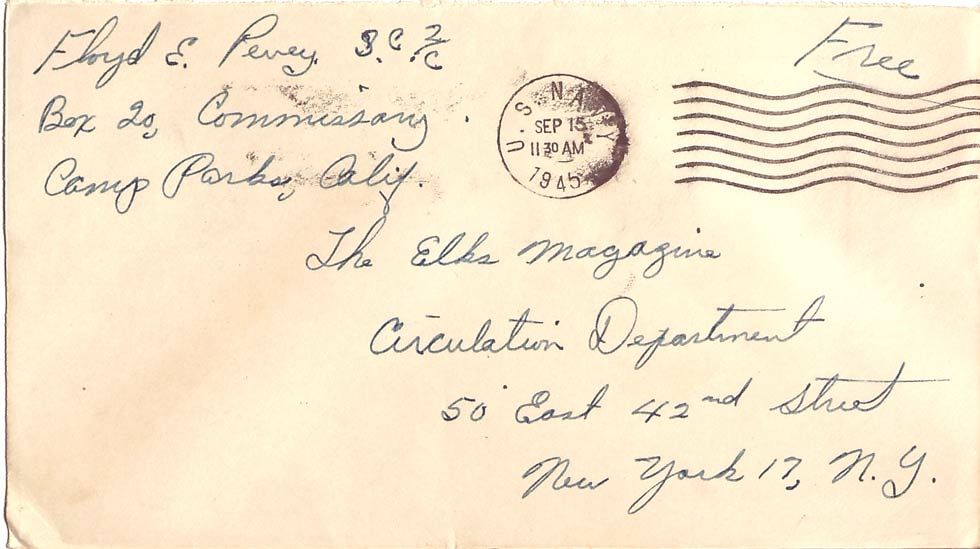 Floyd E. Pevey. S.C. 2/C
Free
Box 20, Commissary.
Camp Parks, Calif.
U.S. NAVY
SEP 15
11 30 AM
1945
The Elks Magazine
Circulation Department
50 East 42nd Street
New York 17, N.Y.